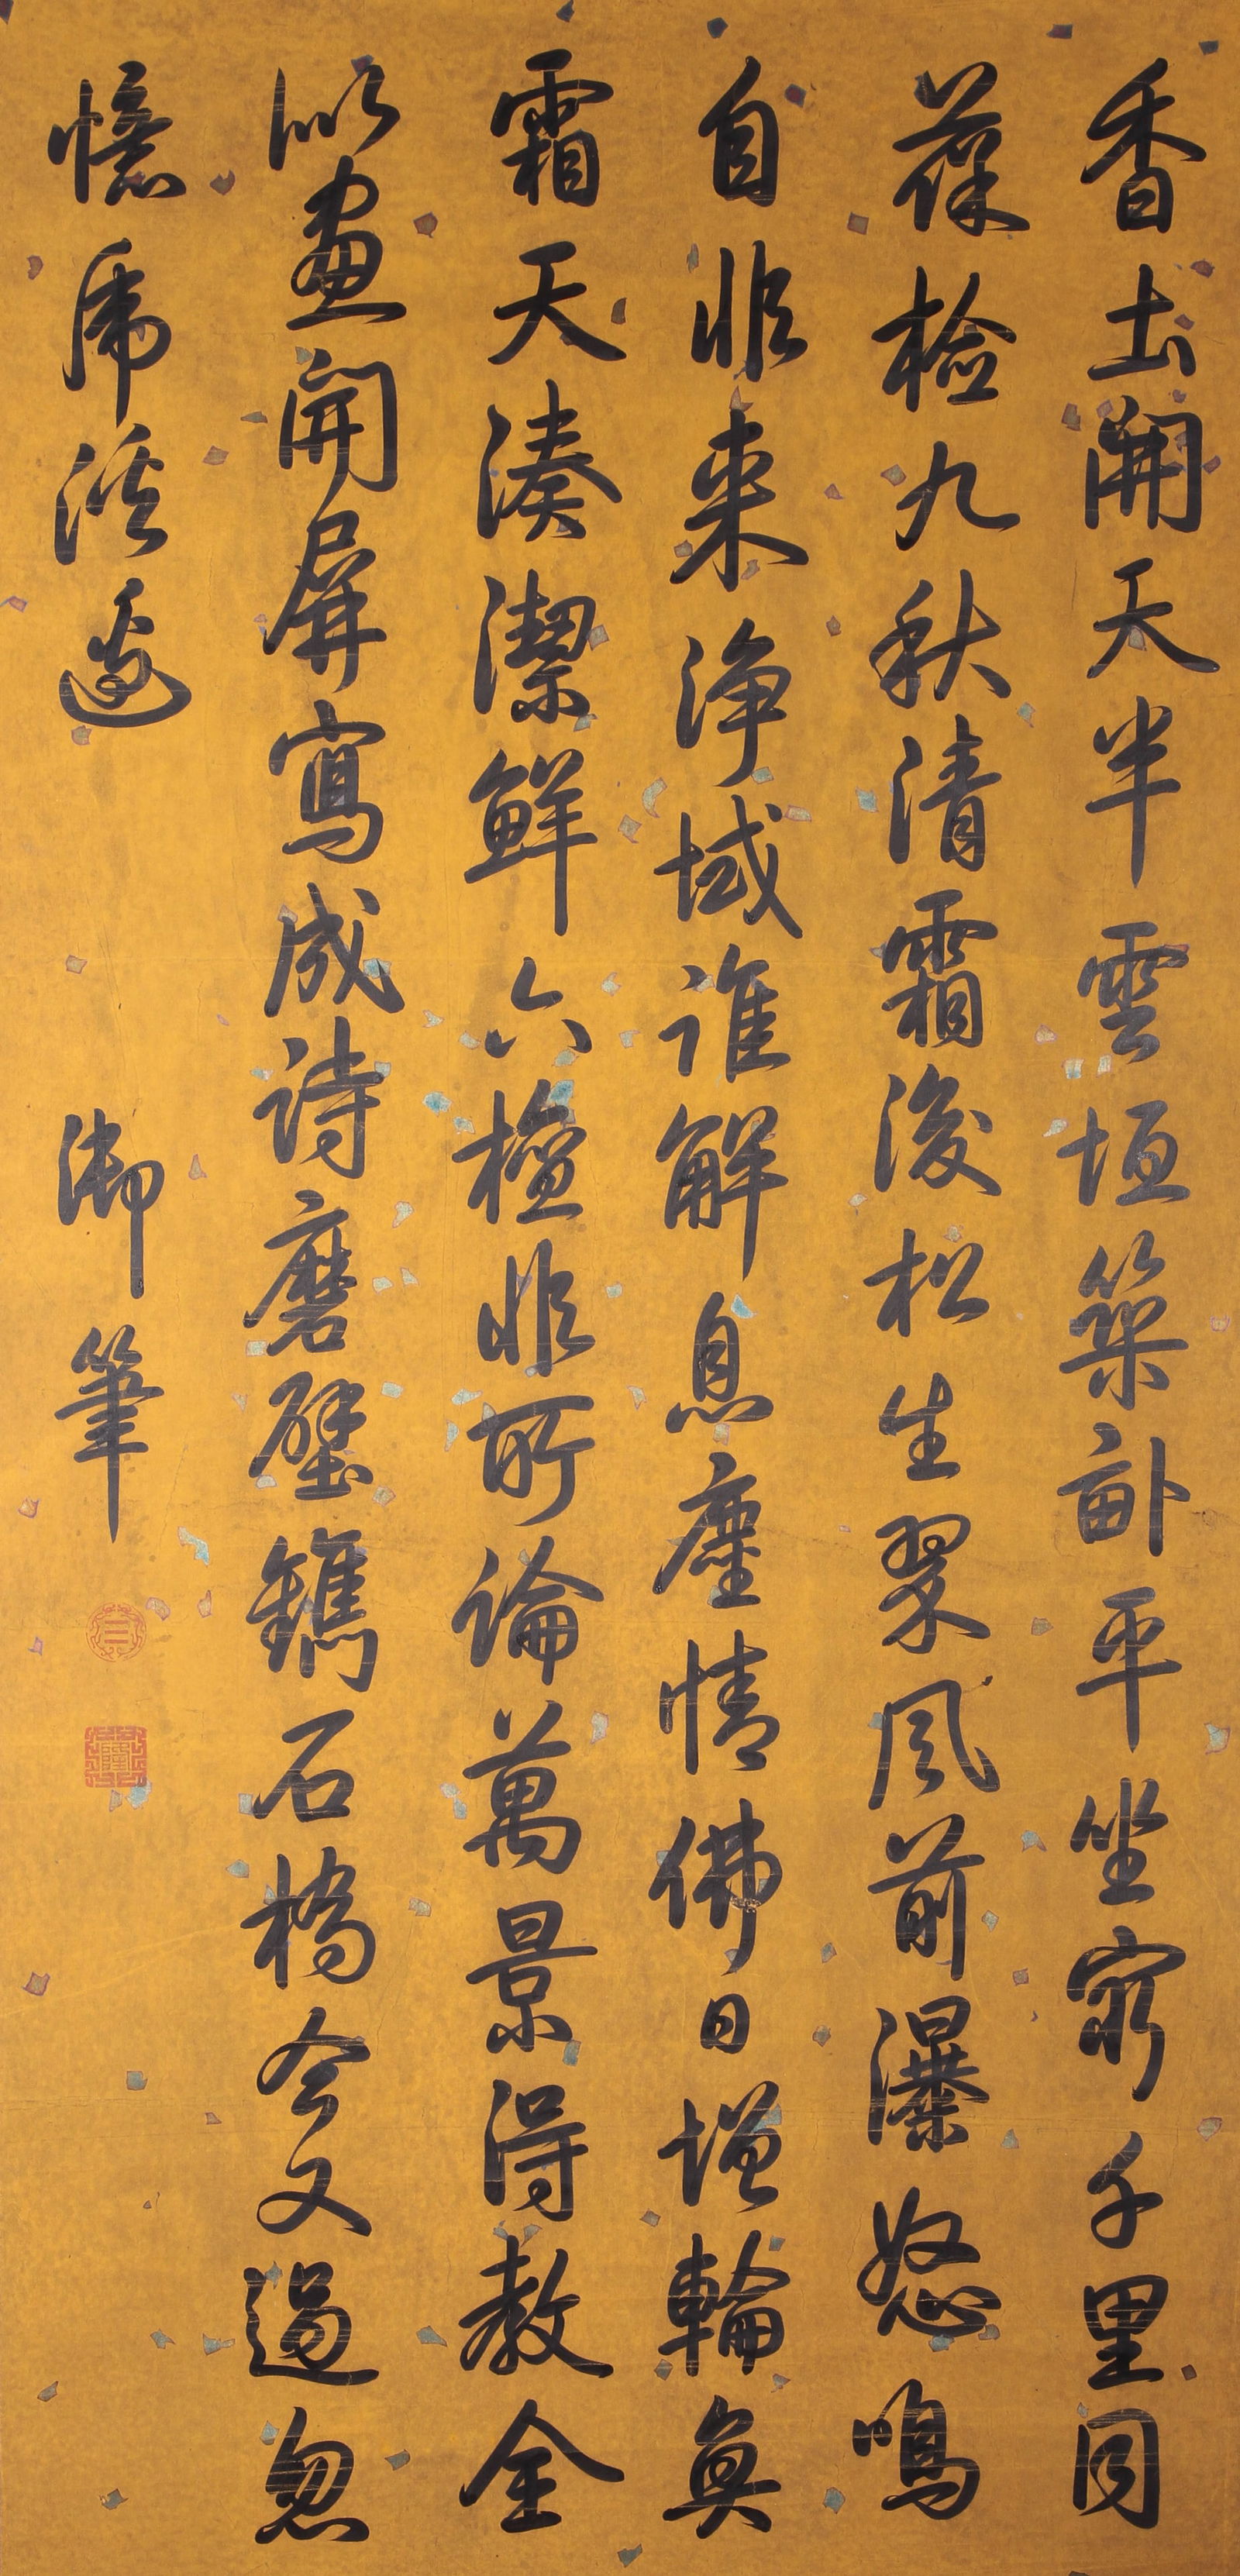 香土開天半雲垣築畝平坐窮千里目
葆檢九秋清霜後松生翠風前瀑怒鳴
自非來淨域誰解息塵情佛日增輪奐
霜天湊潔鮮六檀非所論萬景得教全
似畫開屏寫成詩磨壁鐫石橋今又過忽
憶虎溪邊
御筆